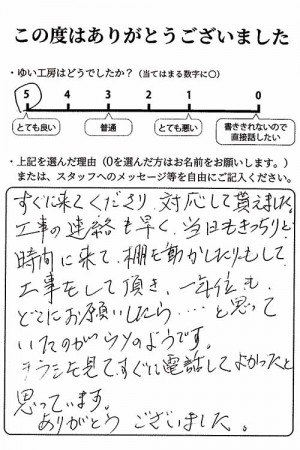 この度はありがとうございました
・ゆい工房はどうでしたか？（当てはまる数字に○）
5 4 3 2 1 0
とても良い 普通 とても悪い 書ききれないので直接話したい
・上記を選んだ理由（0を選んだ方はお名前をお願いします。）
または、スタッフへのメッセージ等を自由にご記入ください。
すぐに来てくださり、対応して貰えました。
工事の連絡も早く、当日もきっちりと
時間に来て、棚を動かしたりもして
工事をして頂き、一年位も、
どこにお願いしたら・・・・と思って
いたのがウソのようです。
チラシを見てすぐに電話してよかったと
思っています。
ありがとうございました。